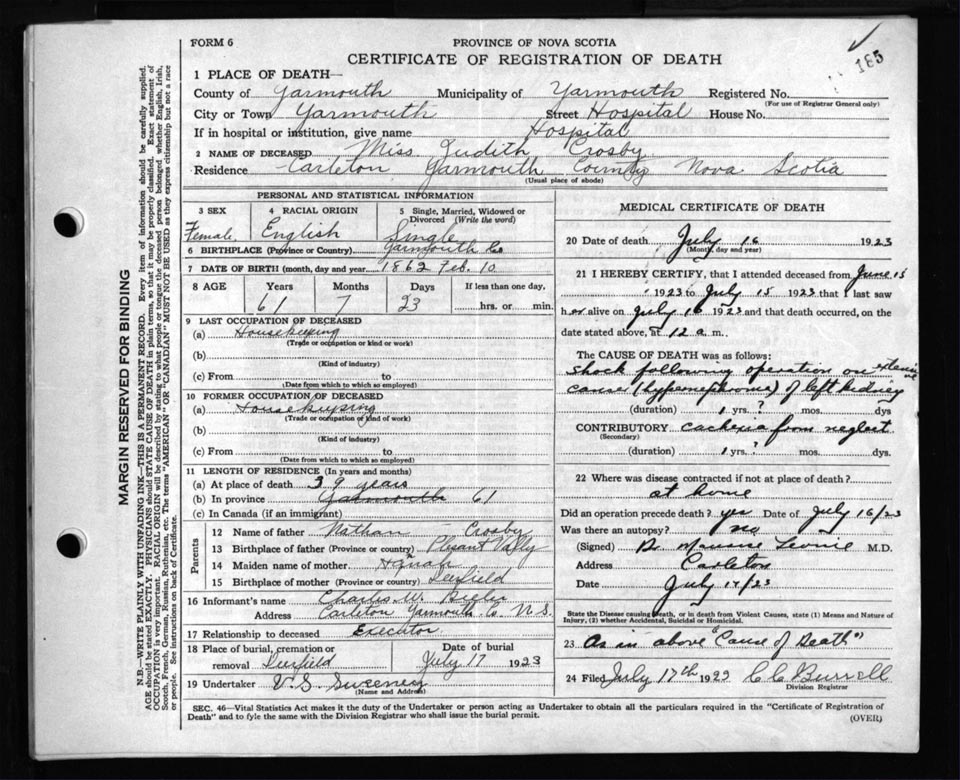 FORM 6
PROVINCE OF NOVA SCOTIA
185
CERTIFICATE OF REGISTRATION OF DEATH
1 PLACE OF DEATH—
County of Yarmouth Municipality of Yarmouth Registered No.
(For use of Registrar General only)
City or Town Yarmouth Street Hospital House No.
If in hospital or institution, give name Hospital
2 NAME OF DECEASED Miss Judith Crosby
Residence Carleton Yarmouth County Nova Scotia
(Usual place of abode)
PERSONAL AND STATISTICAL INFORMATION
3 SEX 4 RACIAL ORIGIN 5 Single, Married, Widowed or Divorced (Write the word)
Female English Single
6 BIRTHPLACE (Province or Country) Yarmouth Co
7 DATE OF BIRTH (month, day and year) 1862 Feb. 10
8 AGE Years Months Days If less than one day,
61 7 23 hrs. or min.
9 LAST OCCUPATION OF DECEASED
(a) Housekeeping
(Trade or occupation or kind or work)
(b)
(Kind of industry)
(c) From to
(Date from which to which so employed)
10 FORMER OCCUPATION OF DECEASED
(a) Housekeeping
(Trade or occupation or kind of work)
(b)
(Kind of industry)
(c) From to
(Date from which to which so employed)
11 LENGTH OF RESIDENCE (In years and months)
(a) At place of death 39 years
(b) In province Yarmouth 61
(c) In Canada (if an immigrant)
Parents
12 Name of father Nathan Crosby
13 Birthplace of father (Province or country) Plesant Vally
14 Maiden name of mother Hanah
15 Birthplace of mother (Province or country) Deerfield
16 Informant's name Charles W.
Address Carleton Yarmouth Co N.S.
17 Relationship to deceased Executor
18 Place of burial, cremation or removal Deerfield
Date of burial July 17 1923
19 Undertaker V. S. Sweeney
(Name and Address)
MEDICAL CERTIFICATE OF DEATH
20 Date of death July 16 1923
(Month, day and year)
21 I HEREBY CERTIFY, that I attended deceased from June 15
1923 to July 15 1923 that I last saw
her alive on July 16 1923 and that death occurred, on the
date stated above, at 12 a m.
The CAUSE OF DEATH was as follows:
Shock following operation on extensive
cancer (hypernephroma) of left kidney
(duration) 1 yrs. ? mos. dys
CONTRIBUTORY cachexia from neglect
(Secondary)
(duration) 1 yrs. ? mos. dys.
22 Where was disease contracted if not at place of death?
at home
Did an operation precede death? yes Date of July 16/23
Was there an autopsy? no
(Signed) Dr. M.D.
Address Carleton
Date July 17/23
State the Disease causing Death, or in death from Violent Causes, state (1) Means and Nature of Injury, (2) whether Accidental, Suicidal or Homicidal.
23 As in above "Cause of Death"
24 Filed July 17th 1923 C C Burrell
Division Registrar
SEC. 46—Vital Statistics Act makes it the duty of the Undertaker or person acting as Undertaker to obtain all the particulars required in the "Certificate of Registration of
Death" and to fyle the same with the Division Registrar who shall issue the burial permit.
(OVER)
MARGIN RESERVED FOR BINDING
N.B.—WRITE PLAINLY WITH UNFADING INK—THIS IS A PERMANENT RECORD. Every item of information should be carefully supplied.
AGE should be stated EXACTLY. PHYSICIANS should STATE CAUSE OF DEATH in plain terms, so that it may be properly classified. Exact statement of
OCCUPATION is very important. RACIAL ORIGIN will be described by stating to what people or tongue the deceased person belonged whether English, Irish,
Scotch, French, German, Russian, Ruthenian, etc. The terms "AMERICAN" or "CANADIAN" MUST NOT BE USED as they express citizenship but not a race
or people. See instructions on back of Certificate.